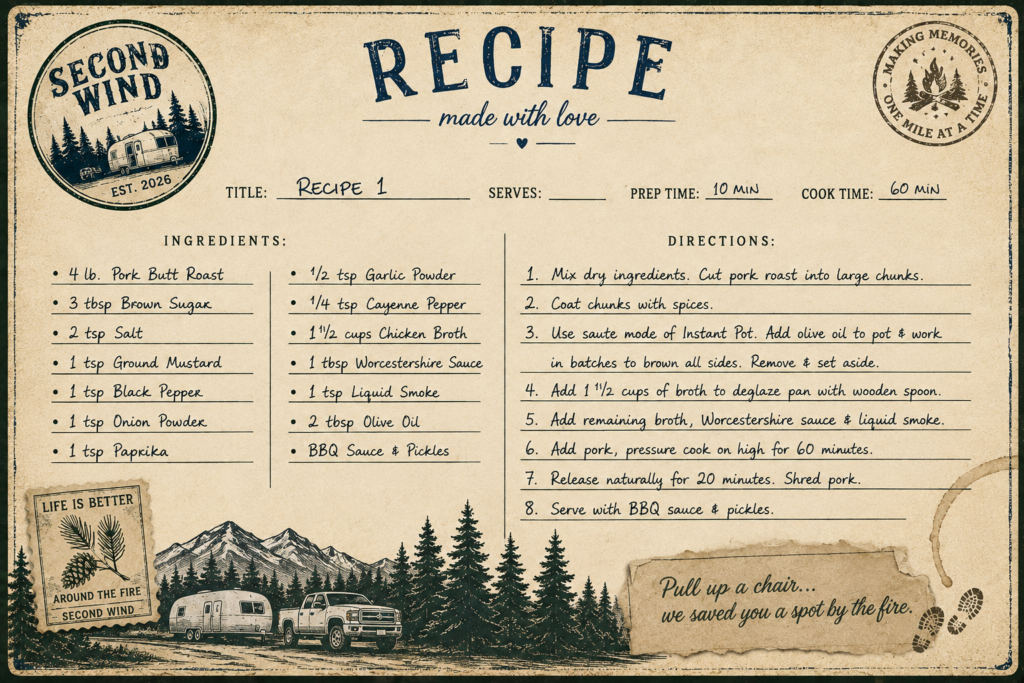 SECOND
WIND
EST. 2026
RECIPE
made with love
MAKING MEMORIES
ONE MILE AT A TIME
TITLE: RECIPE 1
SERVES:
PREP TIME: 10 MIN
COOK TIME: 60 MIN
INGREDIENTS:
• 4 lb. Pork Butt Roast
• 3 tbsp Brown Sugar
• 2 tsp Salt
• 1 tsp Ground Mustard
• 1 tsp Black Pepper
• 1 tsp Onion Powder
• 1 tsp Paprika
• 1/2 tsp Garlic Powder
• 1/4 tsp Cayenne Pepper
• 1 11/2 cups Chicken Broth
• 1 tbsp Worcestershire Sauce
• 1 tsp Liquid Smoke
• 2 tbsp Olive Oil
• BBQ Sauce & Pickles
DIRECTIONS:
1. Mix dry ingredients. Cut pork roast into large chunks.
2. Coat chunks with spices.
3. Use saute mode of Instant Pot. Add olive oil to pot & work
in batches to brown all sides. Remove & set aside.
4. Add 1 11/2 cups of broth to deglaze pan with wooden spoon.
5. Add remaining broth, Worcestershire sauce & liquid smoke.
6. Add pork, pressure cook on high for 60 minutes.
7. Release naturally for 20 minutes. Shred pork.
8. Serve with BBQ sauce & pickles.
LIFE IS BETTER
AROUND THE FIRE
SECOND WIND
Pull up a chair...
we saved you a spot by the fire.